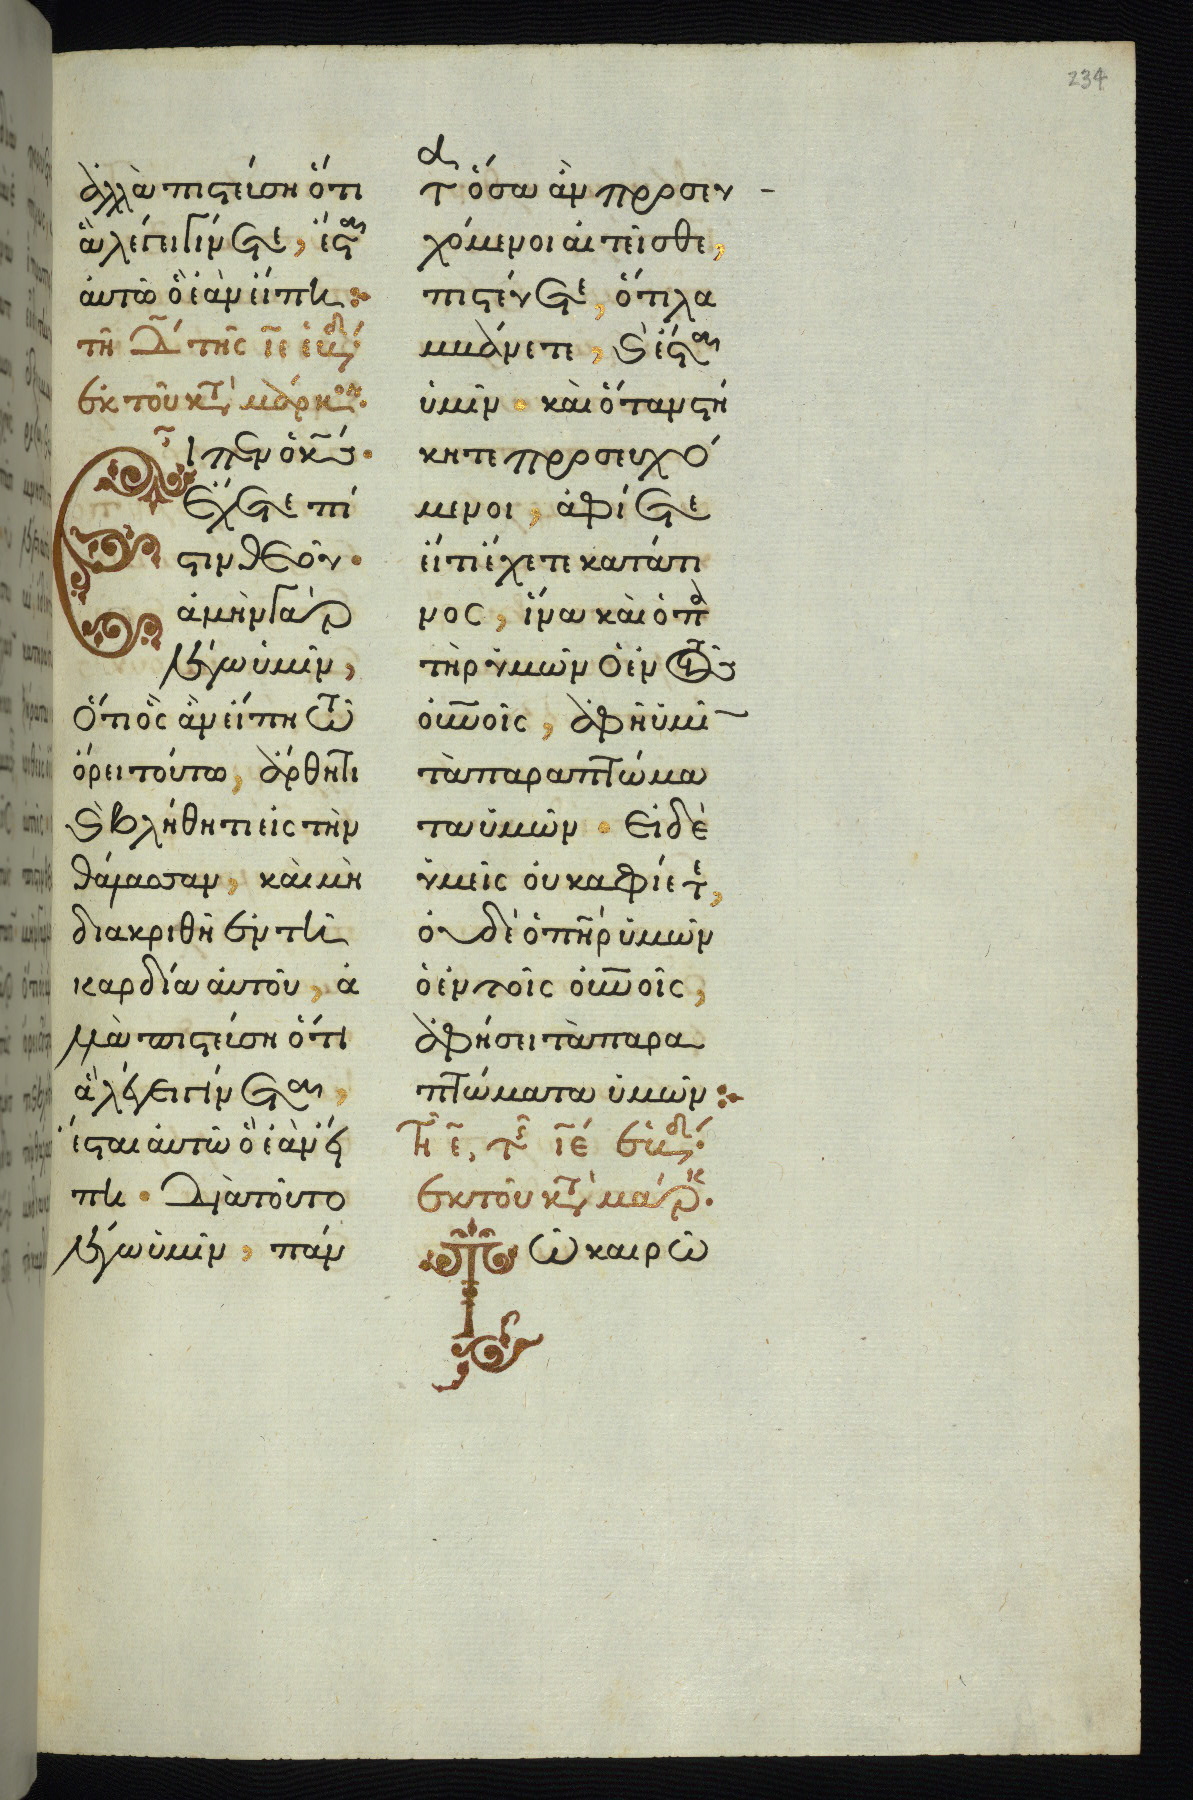 234
ἀλλὰ πιστεύση ὅτι
ἃ λέγει γίνεται, ἔσται
αὐτῶ ὃ ἐὰν εἴπη
τῆ δ τῆς ιε ἑβδ
ἐκ τοῦ κτ μάρκον.
Εἶπεν ὁ κς.
ἔχετε πί
στιν θεοῦ.
ἀμὴν γὰρ
λέγω ὑμῖν,
ὅτι ὃς ἂν εἴπη τῶ
ὄρει τούτω, ἄρθητι
καὶ βλήθητι εἰς τὴν
θάλασσαν, καὶ μὴ
διακριθῆ ἐν τῆ
καρδία αὐτοῦ, ἀλ
λὰ πιστεύση ὅτι
ἃ λέγει γίνεται,
ἔσται αὐτῶ ὃ ἐὰν εἴ
πη. Διὰ τοῦτο
λέγω ὑμῖν, πάν
τα ὅσα ἂν προσευ
χόμενοι αἰτεῖσθε,
πιστεύετε, ὅτι λα
μβάνετε, καὶ ἔσται
ὑμῖν. καὶ ὅταν στή
κητε προσευχό
μενοι, ἀφίετε
εἴ τι ἔχετε κατά τι
νος, ἵνα καὶ ὁ πα
τὴρ ὑμῶν ὁ ἐν τοῖς
οὐνοῖς, ἀφῆ ὑμῖ
τὰ παραπτώμα
τα ὑμῶν. Εἰ δὲ
ὑμεῖς οὐκ ἀφίετε,
οὐδὲ ὁ πηρ ὑμῶν
ὁ ἐν τοῖς οὐνοῖς,
ἀφήσει τὰ παρα
πτώματα ὑμῶν
τῆ ε, τῆς ιε ἑβδ.
ἐκ τοῦ κτ μάρκ.
Τῶ καιρῶ